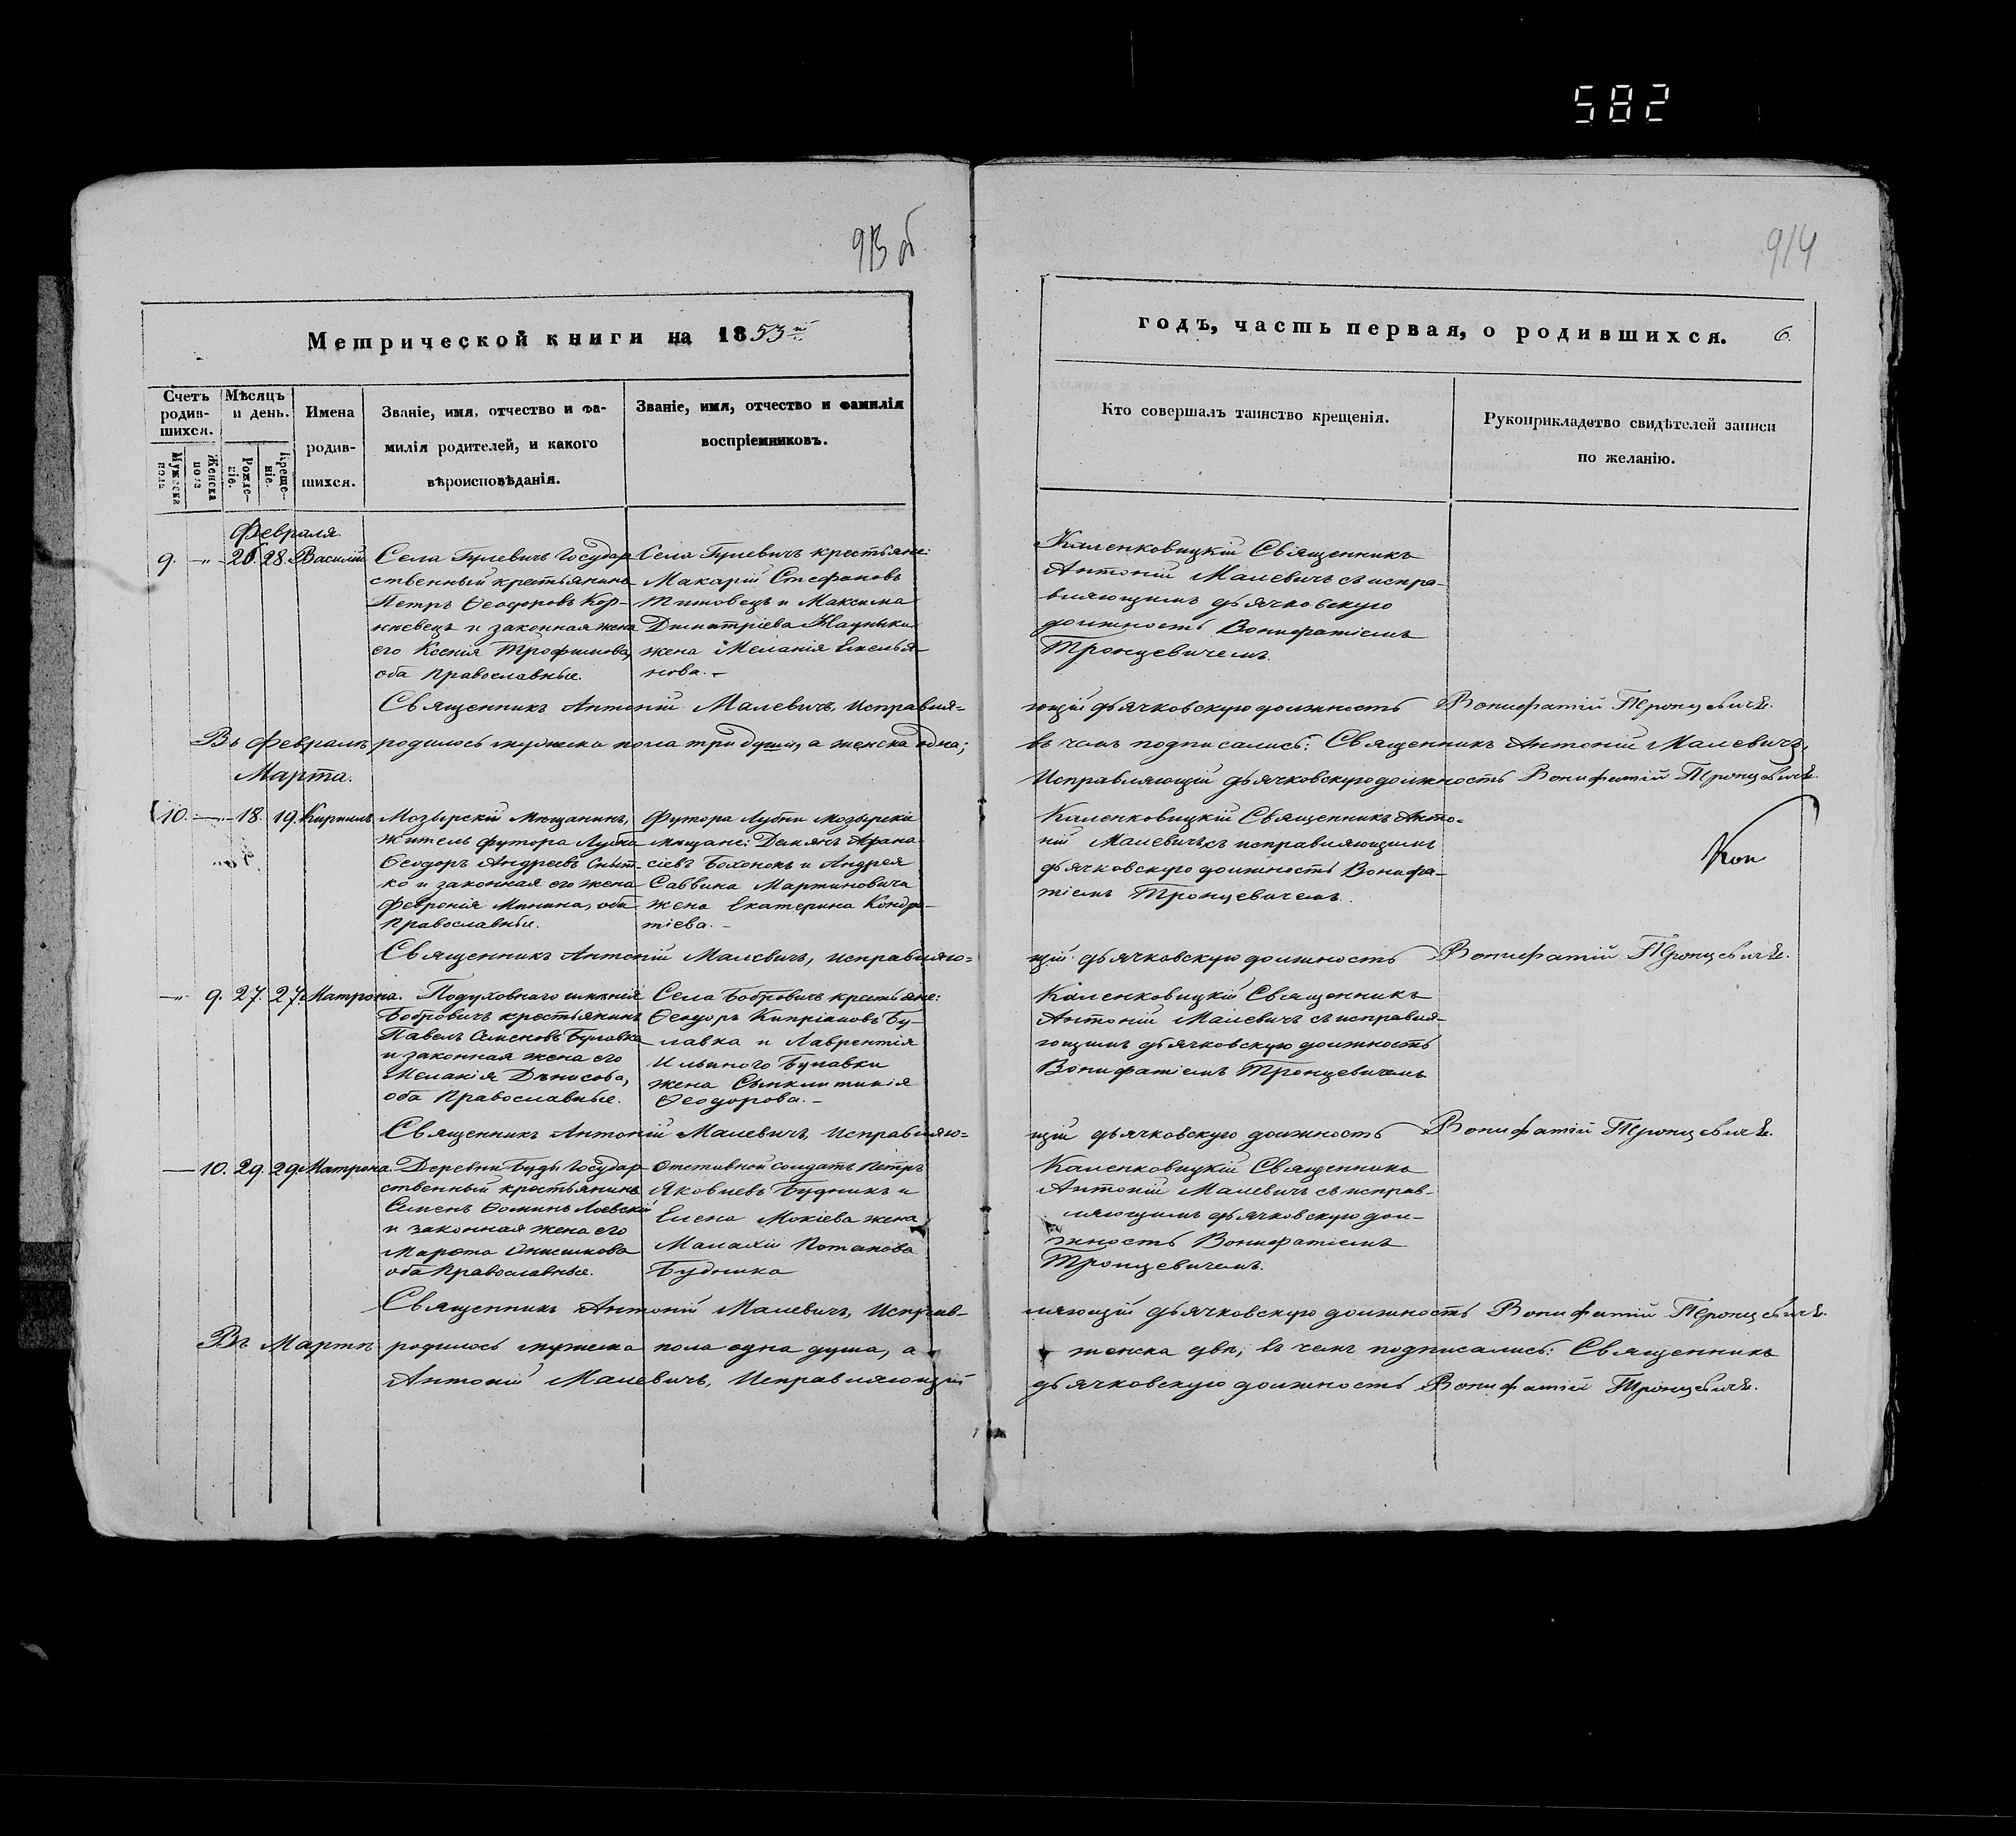 582
913 об
914
Метрической книги на 1853й
годъ, часть первая, о родившихся.
6.
Счетъ родив-шихся.
Мужеска пола
Женска пола
Мѣсяцъ и день.
Рожде-ніе.
Креще-ніе.
Имена
родив-
шихся.
Званіе, имя, отчество и фа-
милія родителей, и какого
вѣроисповѣданія.
Званіе, имя, отчество и фамилія
воспріемниковъ.
Кто совершалъ таинство крещенія.
Рукоприкладство свидѣтелей записи
по желанію.
Февраля.
9. -"- 26. 28. Василій
Села Гулевичъ Государ-
ственный крестьянинъ
Петръ Ѳеодоровъ Кор-
нѣевецъ и законная жена
его Ксенія Трофимова,
оба православные.
Села Гулевичъ крестьяне:
Макарій Стефановъ
Титовецъ и Максима
Димитріева
жена Меланія Емелья-
нова. -
Каленковицкій Священникъ
Антоній Малевичъ съ испра-
вляющимъ дьячковскую
должность Вонифатіемъ
Тронцевичемъ.
Священникъ Антоній Малевичъ, Исправля-
ющій дьячковскую должность Вонифатій Тронцевичъ.
Въ Февралѣ родилось мужеска пола три души, а женска одна;
въ чемъ подписались: Священникъ Антоній Малевичъ,
Исправляющій дьячковскую должность Вонифатій Тронцевичъ.
Марта.
10. - 18. 19. Кириллъ
Мозырскій Мѣщанинъ,
житель футора Лубна
Ѳеодоръ Андреевъ Сныт-
ко и законная его жена
Февронія Минина, оба
православные.
Футора Лубни мозырскіе
мѣщане: Демянъ Афана-
сіевъ Бохонокъ и Андрея
Саввина Мартиновича
жена Екатерина Кондра-
тіева. -
Каленковицкій Священникъ Анто-
ній Малевичъ съ исправляющимъ
дьячковскую должность Вонифа-
тіемъ Тронцевичемъ.
Коп
Священникъ Антоній Малевичъ, исправляю-
щій дьячковскую должность Вонифатій Тронцевичъ.
-"- 9. 27. 27. Матрона.
Подуховнаго имѣнія
Бобровичъ крестьянинъ
Павелъ Семеновъ Булавка
и законная жена его
Меланія Денисова,
оба Православные.
Села Бобровичъ крестьяне:
Ѳеодоръ Кипріановъ Бу-
лавка и Лаврентія
Ильиного Булавки
жена Сынклитикія
Ѳеодорова. -
Каленковицкій Священникъ
Антоній Малевичъ съ исправля-
ющимъ дьячковскую должность
Вонифатіемъ Тронцевичемъ
Священникъ Антоній Малевичъ, Исправляю-
щій дьячковскую должность Вонифатій Тронцевичъ.
- 10. 29. 29. Матрона.
Деревни Буды Государ-
ственный крестьянинъ
Семенъ Ѳоминъ Лоевскій
и законная жена его
Марѳта Онисимова
оба Православные.
Отставной солдатъ Петръ
Яковлевъ Будникъ и
Елена Мокіева жена
Малахіи Потапова
Будника
Каленковицкій Священникъ
Антоній Малевичъ съ исправ-
ляющимъ дьячковскую дол-
жность Вонифатіемъ
Тронцевичемъ.
Священникъ Антоній Малевичъ, Исправ-
ляющій дьячковскую должность Вонифатій Тронцевичъ.
Въ Мартѣ родилось мужеска пола одна душа, а
женска двѣ; въ чемъ подписались: Священникъ
Антоній Малевичъ, Исправляющій
дьячковскую должность Вонифатій Тронцевичъ.